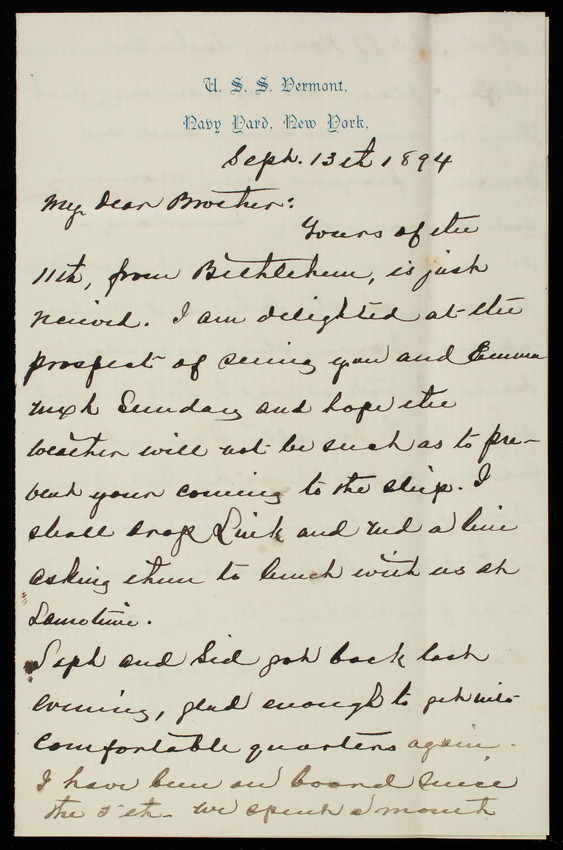 U. S. S. Vermont,
Navy Yard, New York,
Sept. 13th 1894
My dear Brother:
Yours of the
11th, from Bethlehem, is just
received. I am delighted at the
prospect of seeing you and Emma
next Sunday and hope the
weather will not be such as to pre-
vent your coming to the ship. I
shall drop Link and a line
asking them to lunch with us at
Same time.
Seph and Sid got back last
evening, glad enough to get into
comfortable quarters again.
I have been on board since
the 5th - we spent a month